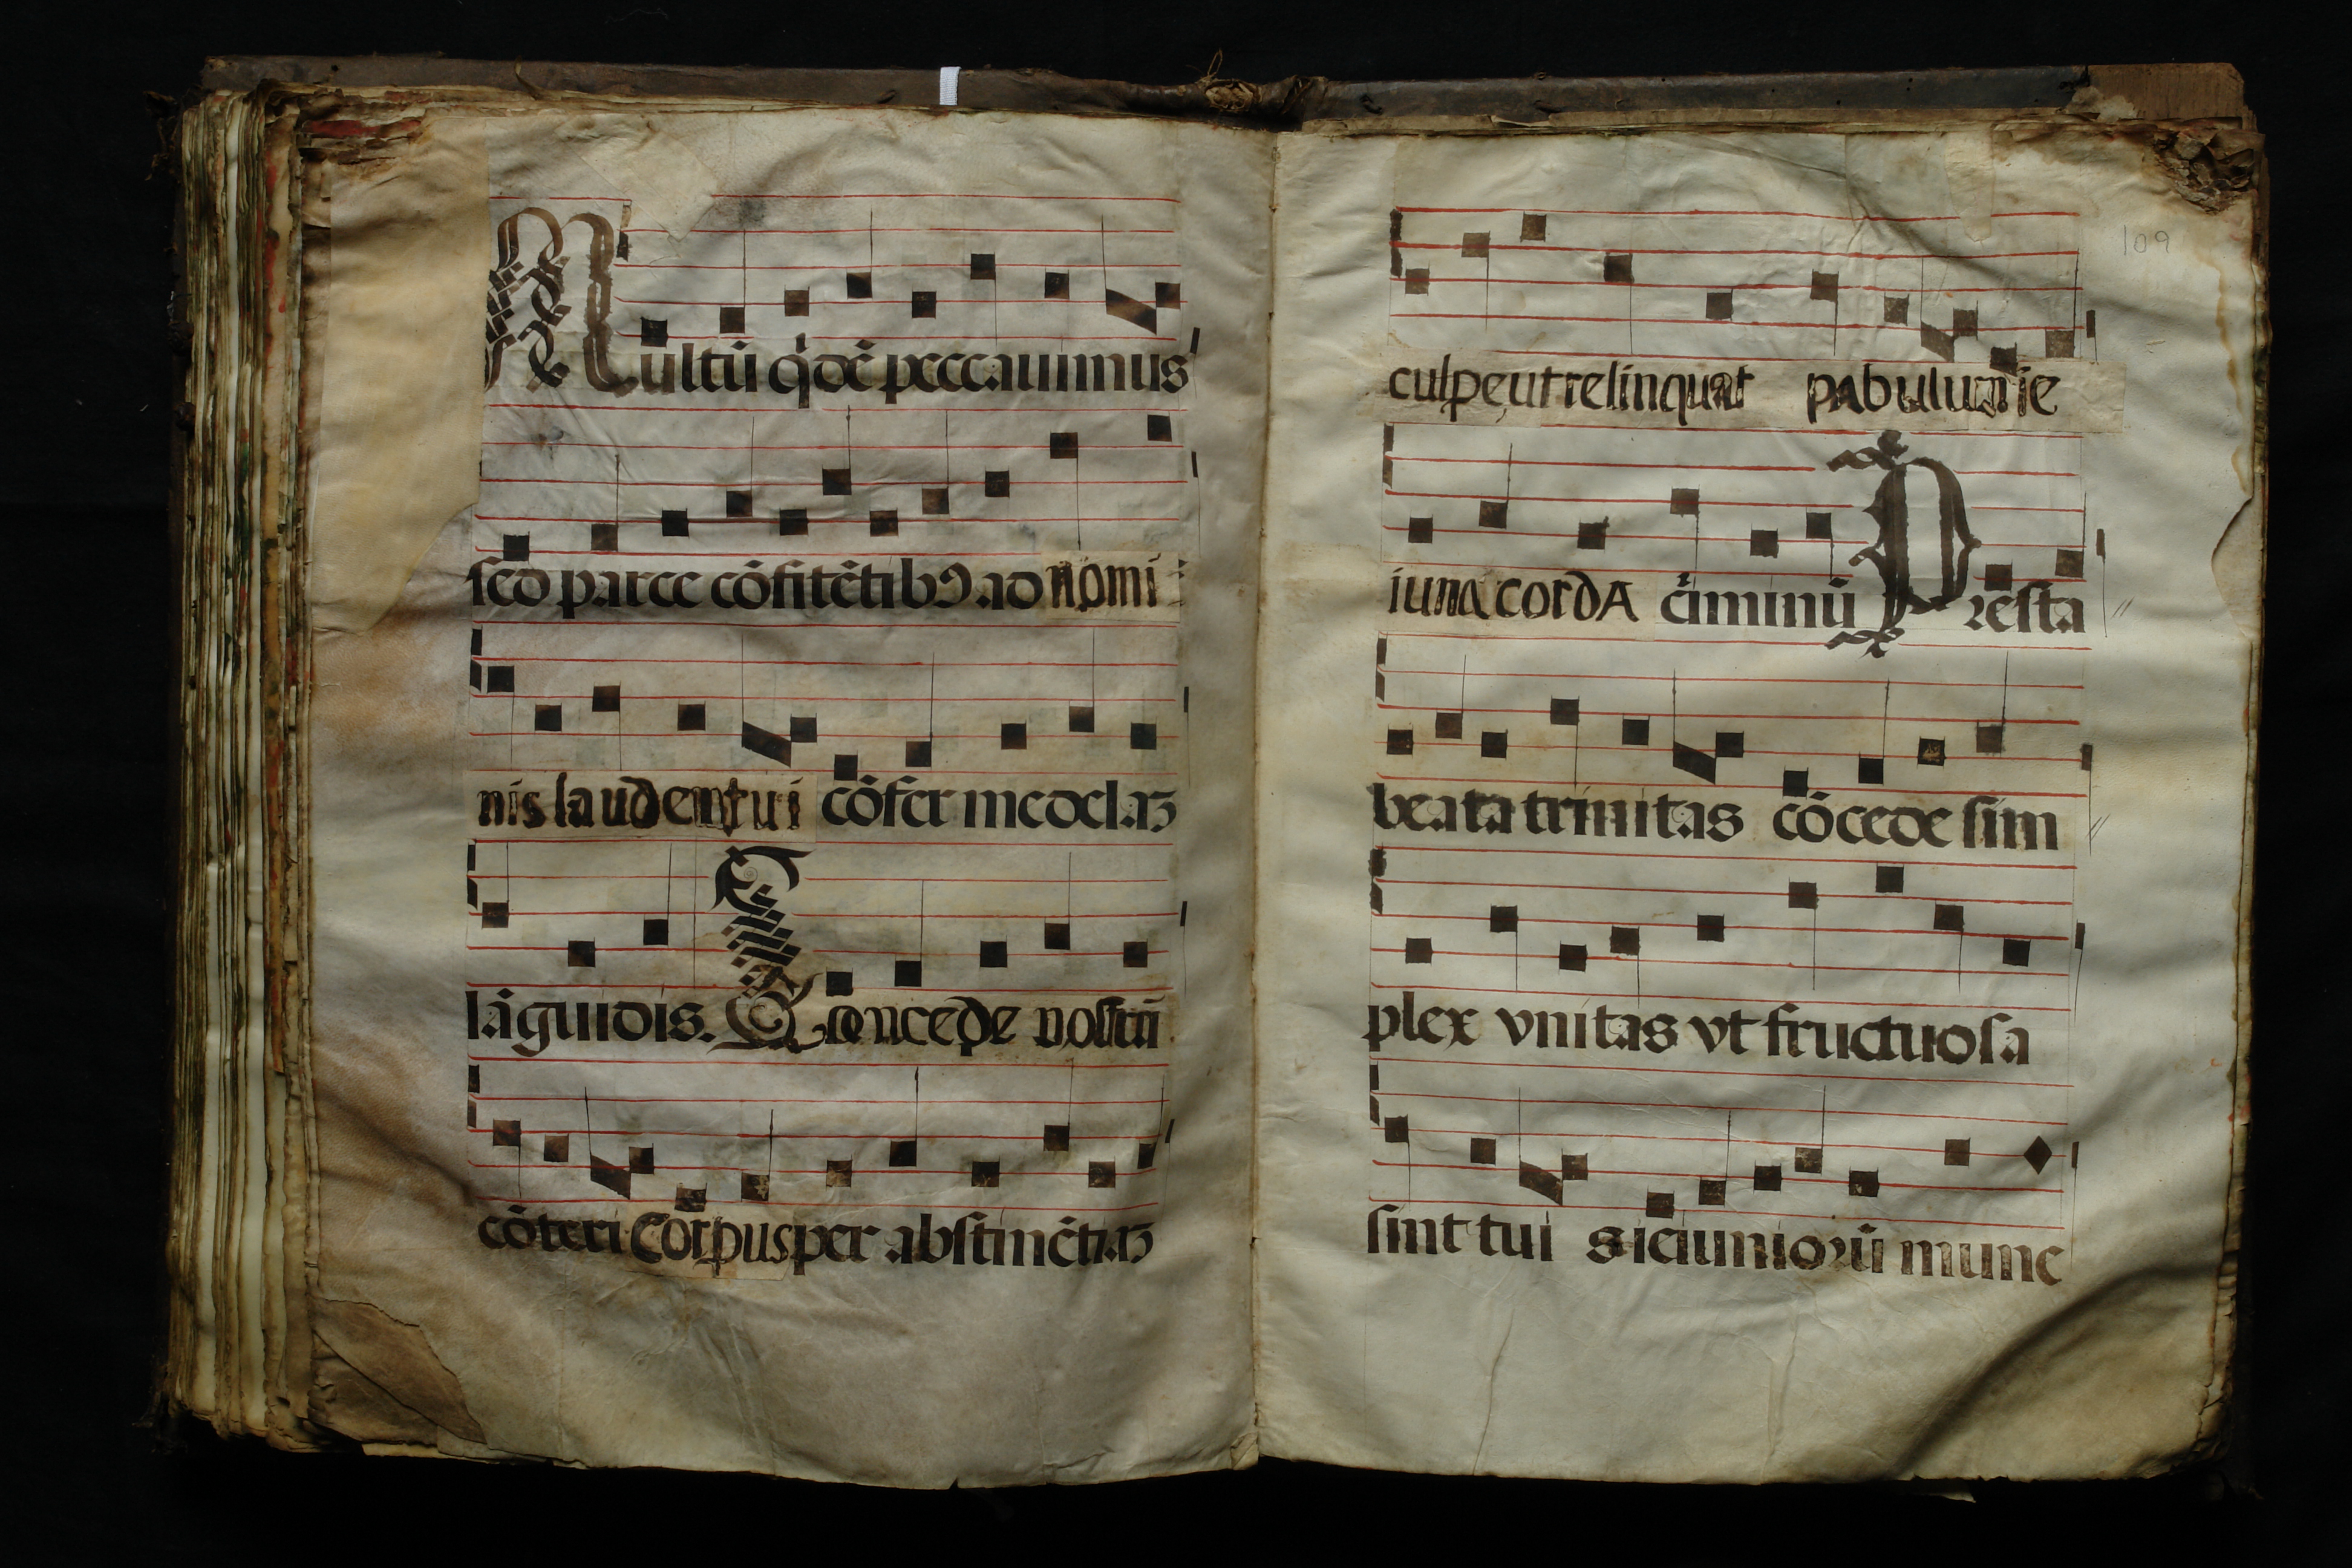 Multũ q̇dẽ peccauimus
sed parce cõfitẽtibꝰ ad nomi
nis laudem tui cõfer medelaꝫ
lãguidis. Concede nostrũ
cõteri Corpus per abstinẽtiaꝫ
109
culpe ut relinquat pabulum ie
iuna corda c̃iminũ Presta
beata trinitas cõcede sim
plex vnitas vt fructuosa
sint tui s ieiuniorũ mune